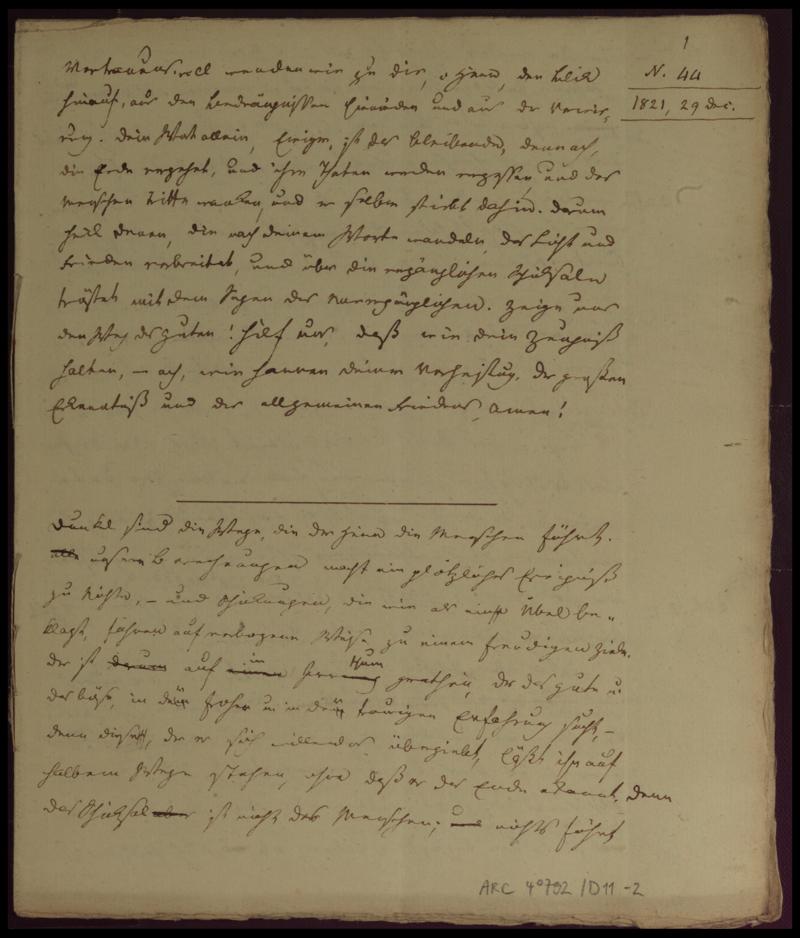 1
N. 44
1821, 29 Dec.
Vertrauensvoll wenden wir zu dir, o Herr, den Blick
hinauf, aus den Bedrängnissen hienieden und aus der Verwir-
rung. Dein Wort allein, Ewiger, ist das bleibende, denn ach,
die Erde vergehet, und ihre Thaten werden vergessen, und des
Menschen Tritte wanken, und er selber stirbt dahin. Darum
Heil denen, die nach deinem Worte wandeln, das Licht und
Frieden verbreitet, und über die vergänglichen Schicksale
tröstet mit dem Segen des unvergänglichen. Zeige uns
den Weg des Guten! Hilf uns, daß wir dein Zeugniß
halten, – ach, wir harren deiner Verheißung, der großen
Erkenntniß und des allgemeinen Friedens, Amen!
Dunkel sind die Wege, die der Herr die Menschen führt.
alle unsere Berechnungen macht ein plötzliches Ereigniß
zu Nichte, – und Schickungen, die wir als ein Übel be-
klagt, führen auf verborgene Weise zu einem freudigen Ziele.
Der ist auf im gerathen, der das gute u.
das böse, in der frohen u. in der traurigen Erfahrung sucht, –
denn diese, der er sich willenlos übergiebt, läßt ihn auf
halbem Wege stehen, ohne daß er das Ende erkannt, denn
das Schicksal aber ist nicht des Menschen; und nichts führt
ARC 4°792 /D11 -2